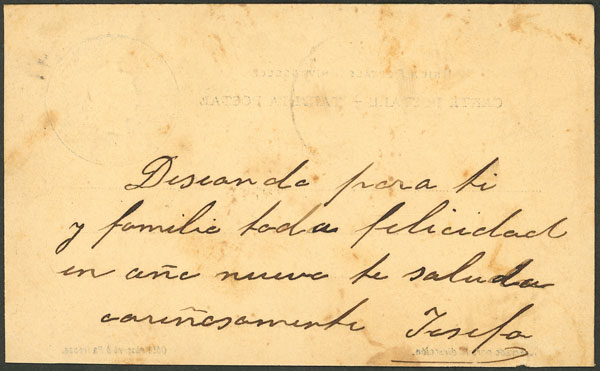 Deseando para ti
y familia toda felicidad
en año nuevo te saluda
cariñosamente Josefa